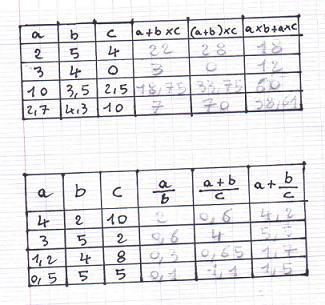 a b c a+b×c (a+b)×c a×b+a×c
2 5 4 22 28 18
3 4 0 3 0 12
10 3,5 2,5 18,75 33,75 60
2,7 4,3 10 7 70 38,61
a b c a/b a+b/c a+b/c
4 2 10 2 0,6 4,2
3 5 2 0,6 4 5,5
1,2 4 8 0,3 0,65 1,7
0,5 5 5 0,1 1,1 1,5